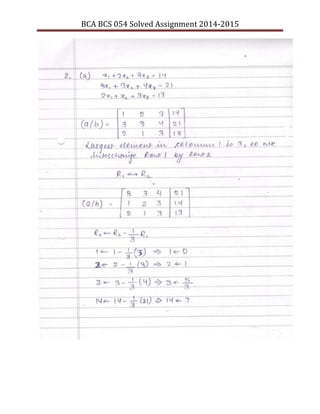 BCA BCS 054 Solved Assignment 2014-2015
2. (a) x₁ + 2x₂ + 3x₃ = 14
3x₁ + 3x₂ + 4x₃ = 21
2x₁ + x₂ + 3x₃ = 13
(a/b) = [ 1 2 3 | 14
3 3 4 | 21
2 1 3 | 13 ]
Largest element in column 1 is 3, so we
interchange Row 1 by Row 2
R₁ ↔ R₂
(a/b) = [ 3 3 4 | 21
1 2 3 | 14
2 1 3 | 13 ]
R₂ ← R₂ - 1/3 R₁
1 ← 1 - 1/3 (3) ⇒ 1 ← 0
2 ← 2 - 1/3 (3) ⇒ 2 ← 1
3 ← 3 - 1/3 (4) ⇒ 3 ← 5/3
14 ← 14 - 1/3 (21) ⇒ 14 ← 7